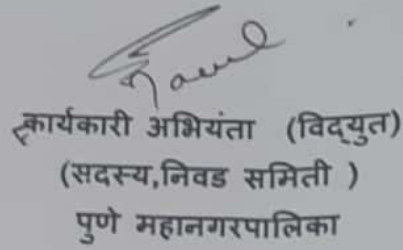 कार्यकारी अभियंता (विद्युत)
(सदस्य,निवड समिती )
पुणे महानगरपालिका